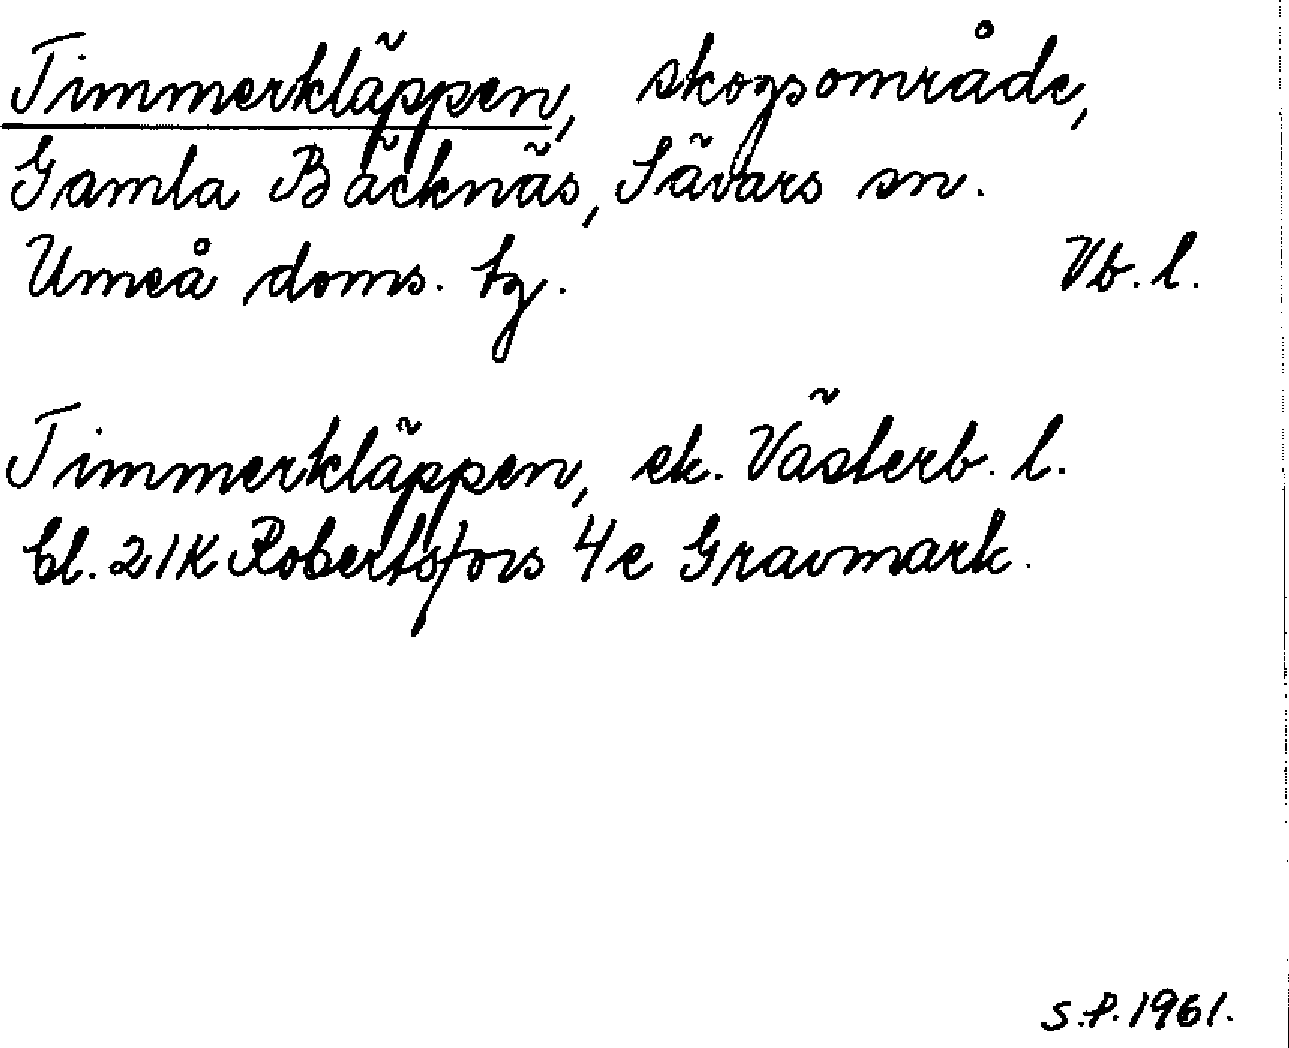 Timmerkläppen, skogsområde,
Gamla Bäcknäs, Sävars sn.
Umeå doms. tg. Vb. l.
Timmerkläppen, ek. Västerb. l.
bl. 21K Robertsfors 4e Gravmark.
S.P. 1961.